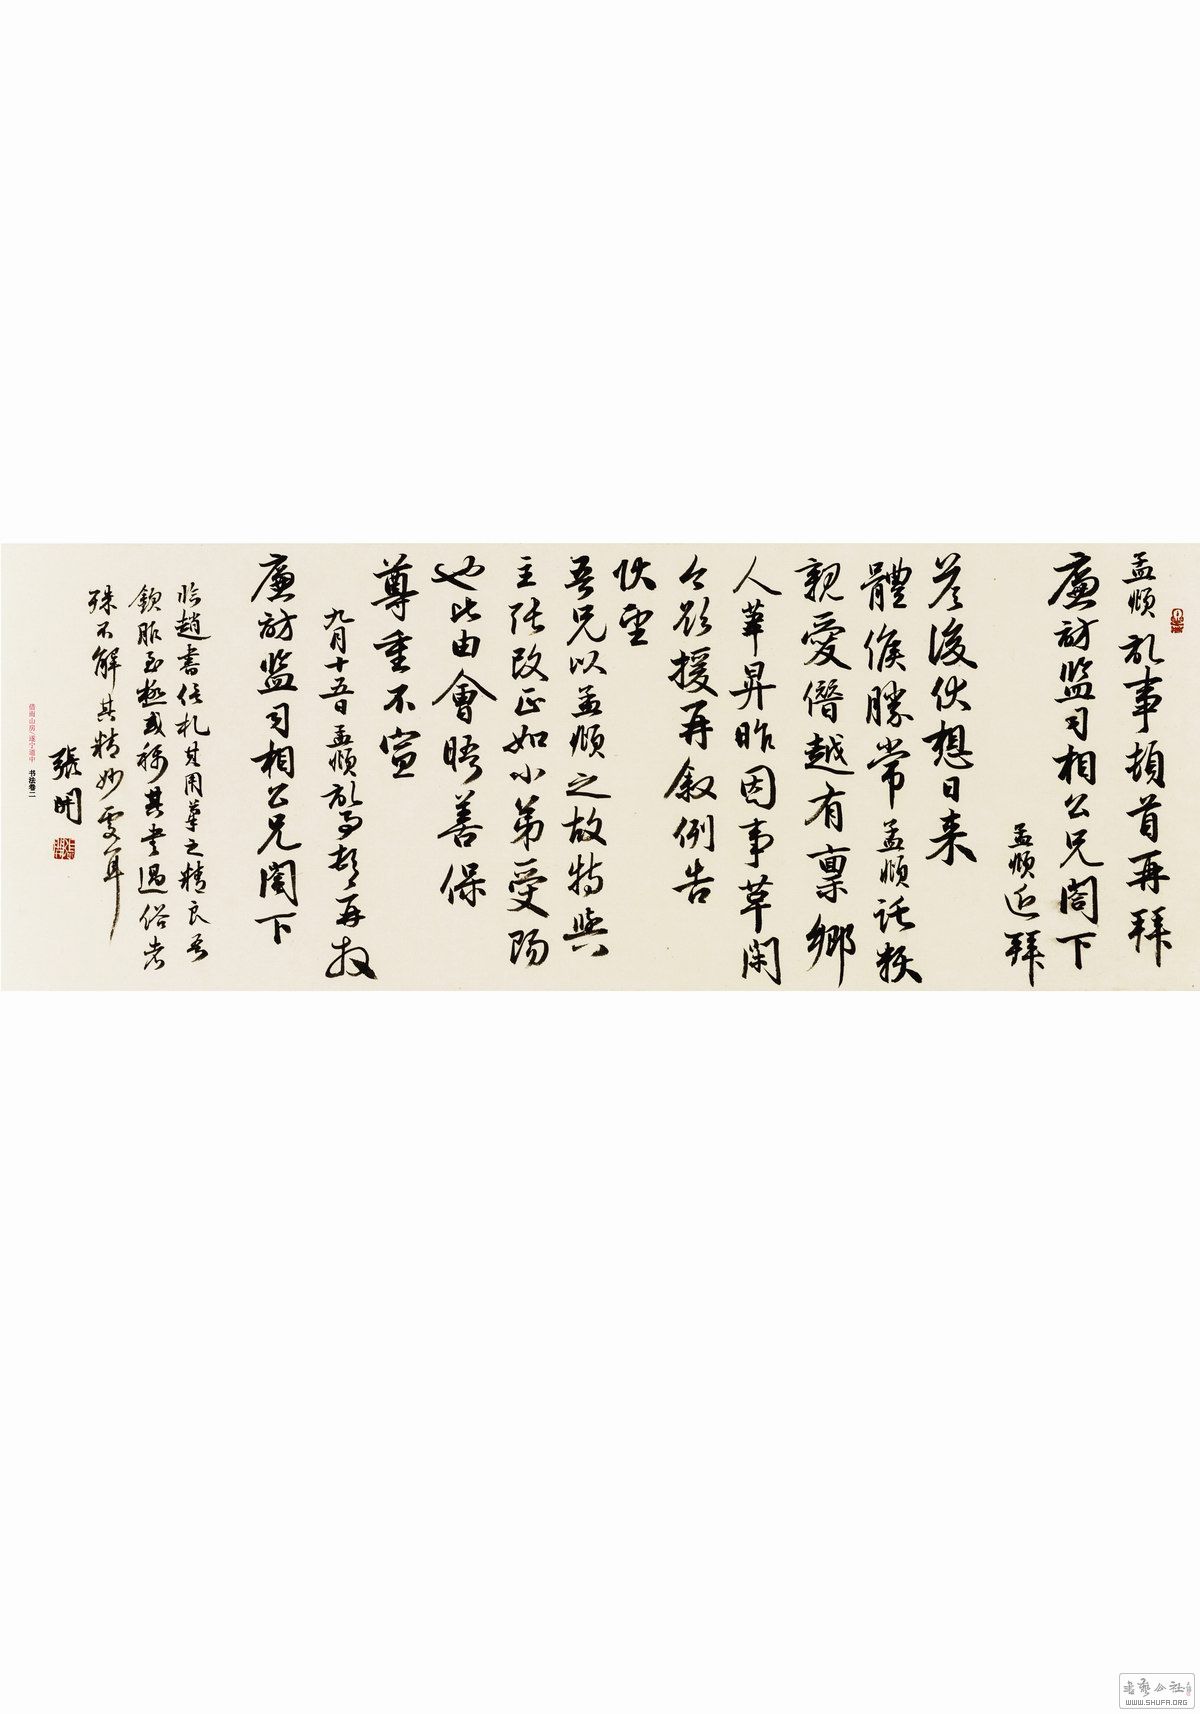 孟頫記事頓首再拜
廉訪監司相公兄閤下
孟頫近拜
違後伏想日来
體候勝常孟頫託契
親愛僭越有禀鄉
人華昇昨因事草閑
今欲援再叙例告
伏望
吾兄以孟頫之故特與
主張改正如小弟受賜
也此由會晤善保
尊重不宣
九月十五日孟頫記事頓首再拜
廉訪監司相公兄閤下
臨趙書信札其用筆之精良吾
欽服至極或稱其書過俗者
殊不解其精妙處耳
張開
借雨山房·遂宁道中 书法卷二
书艺公社
WWW.SHUFA.ORG